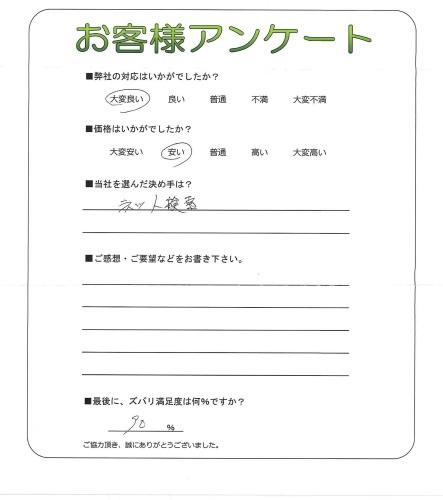 お客様アンケート
■弊社の対応はいかがでしたか?
大変良い 良い 普通 不満 大変不満
■価格はいかがでしたか?
大変安い 安い 普通 高い 大変高い
■当社を選んだ決め手は?
ネット検索
■ご感想・ご要望などをお書き下さい。
■最後に、ズバリ満足度は何%ですか?
90 %
ご協力頂き、誠にありがとうございました。